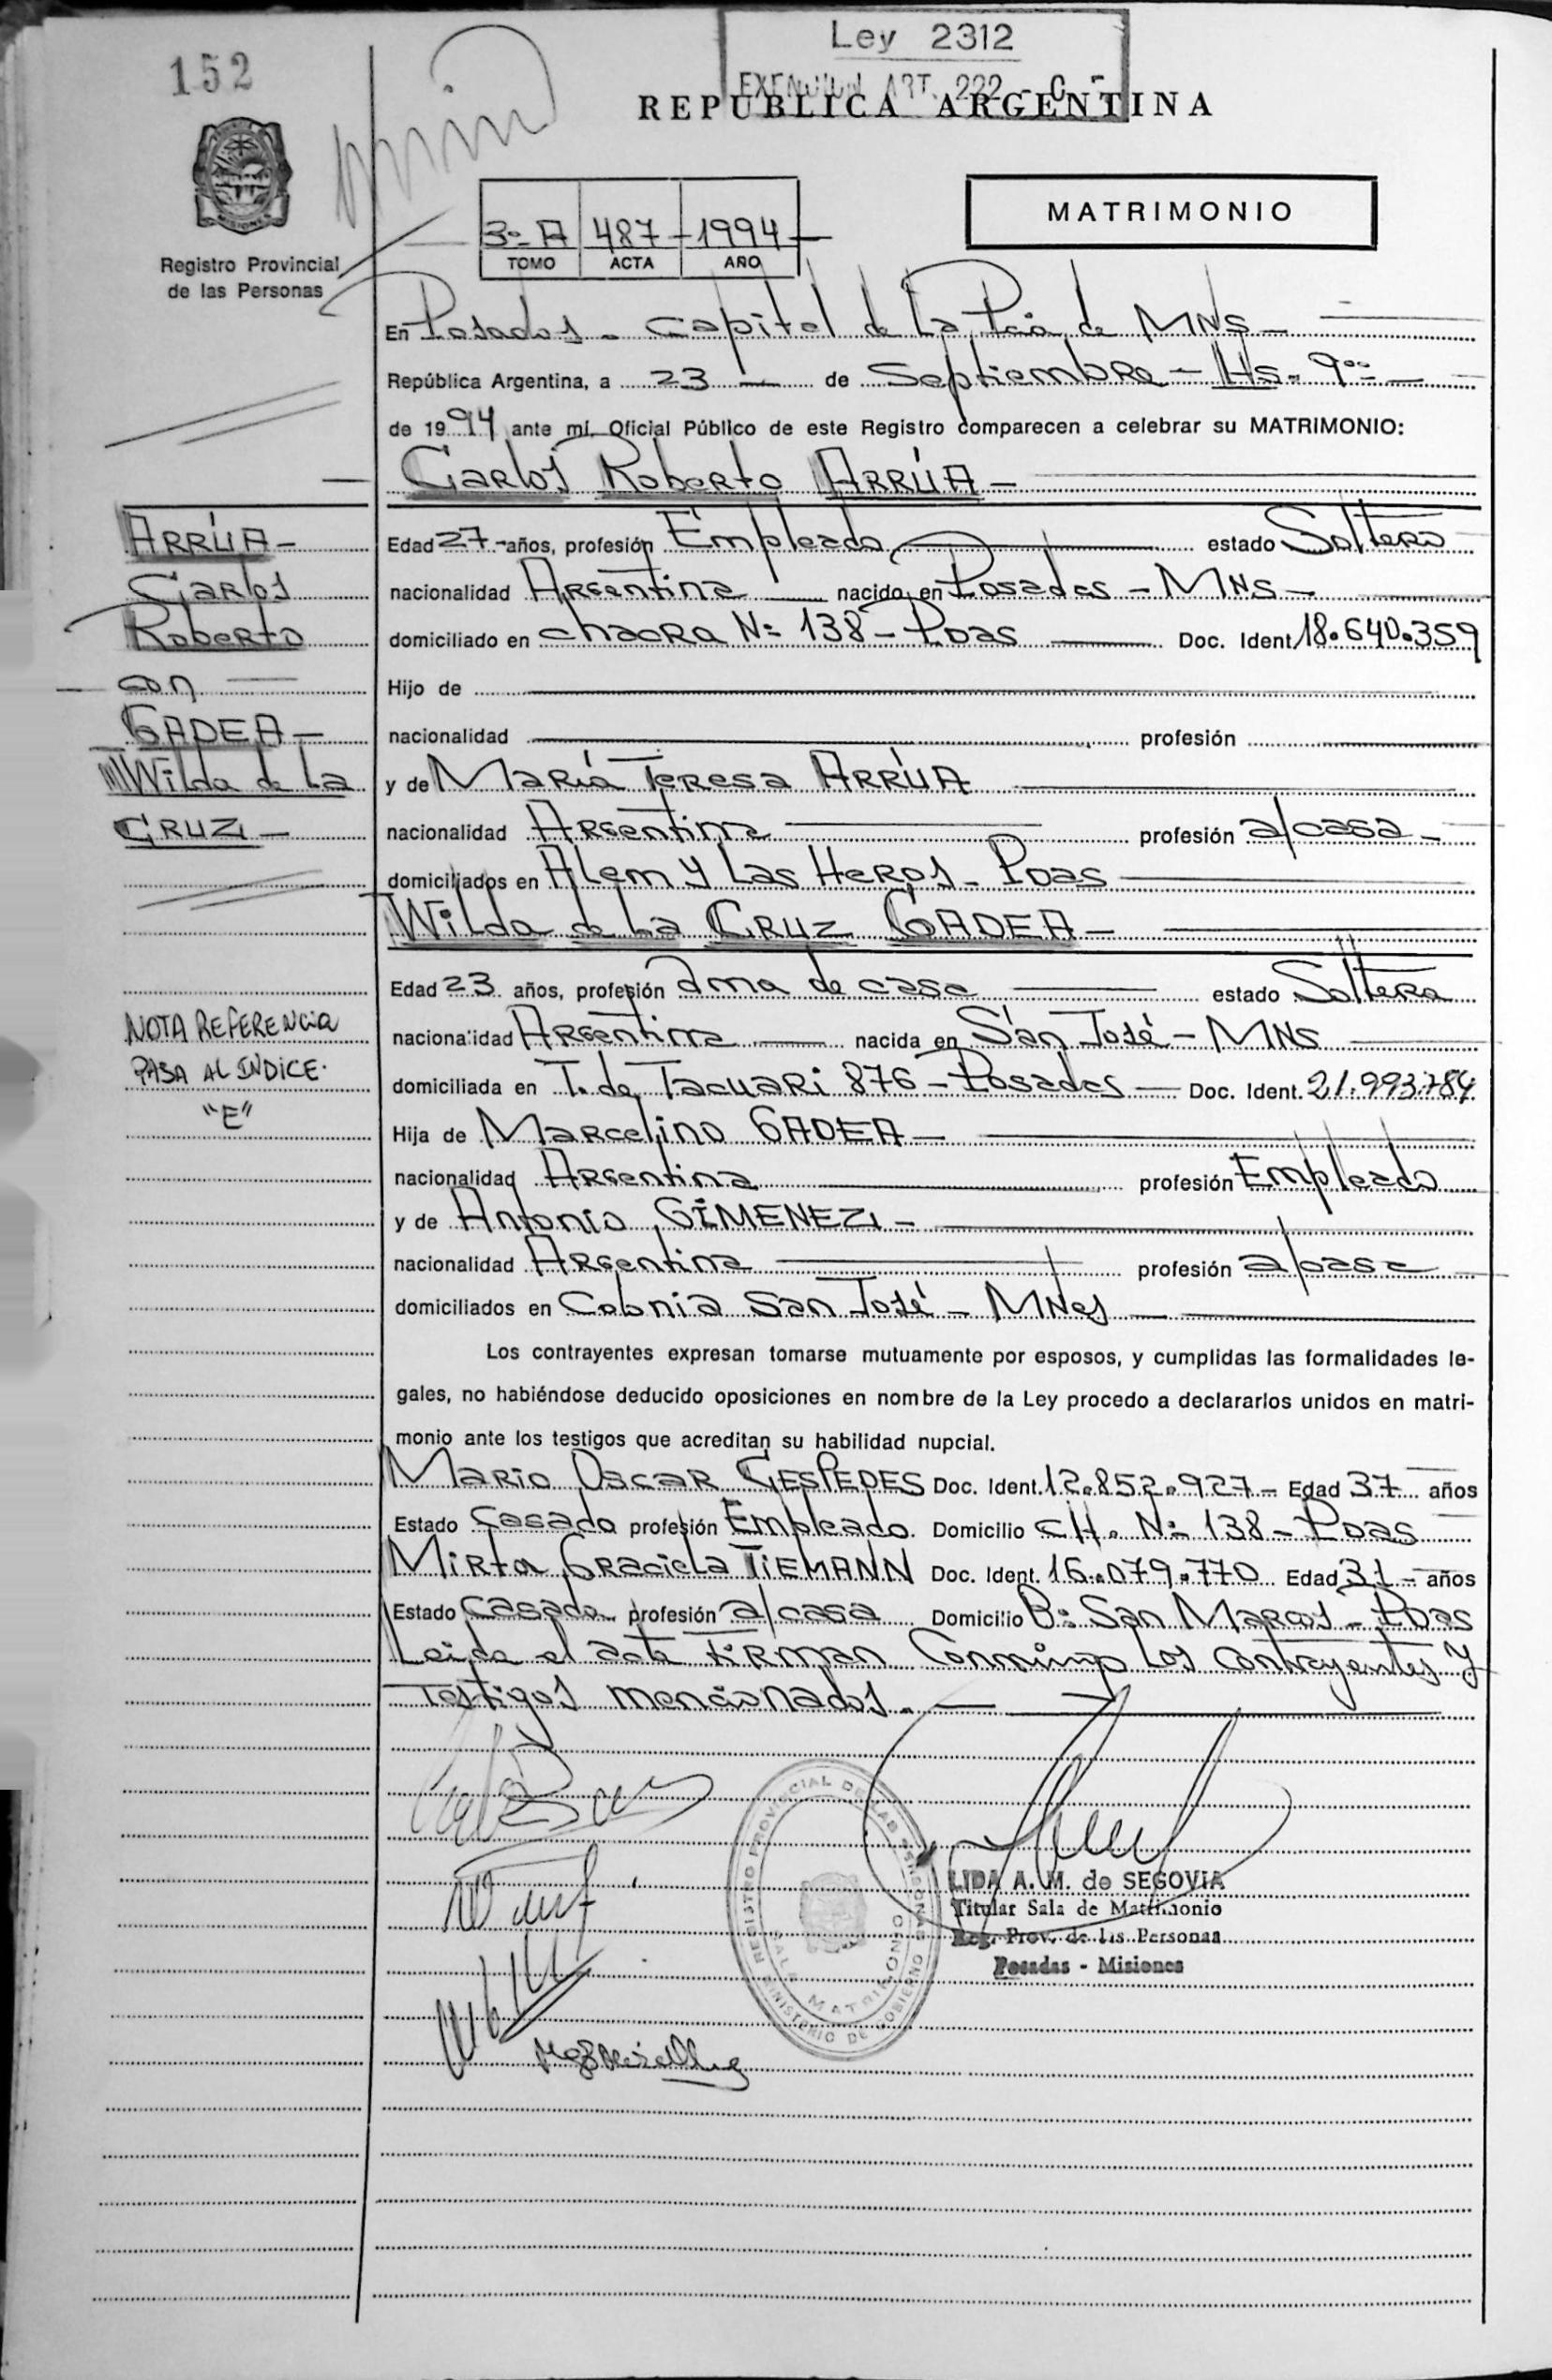 152
Ley 2312
EXENCION ART. 222 - C
REPUBLICA ARGENTINA
MATRIMONIO
3º A 487 1994
TOMO ACTA AÑO
Registro Provincial
de las Personas
En Posadas - Capital de La Pcia de MNS -
República Argentina, a 23 — de Septiembre - Hs. 9ºº —
de 1994 ante mí, Oficial Público de este Registro comparecen a celebrar su MATRIMONIO:
Carlos Roberto ARRÚA -
ARRÚA -
Carlos
Roberto
con
GADEA -
Wilda de La
CRUZ -
NOTA REFERENCIA
PASA AL INDICE.
"E"
Edad 27 - años, profesión Empleado estado Soltero
nacionalidad Argentina nacido en Posadas - MNS -
domiciliado en chacra Nº 138 - Pdas Doc. Ident. 18.640.359
Hijo de
nacionalidad profesión
y de María Teresa ARRÚA
nacionalidad Argentina profesión a/casa -
domiciliados en Alem y Las Heras - Pdas
Wilda de La CRUZ GADEA -
Edad 23 años, profesión ama de casa estado Soltera
nacionalidad Argentina nacida en San José - MNS
domiciliada en T. de Tacuari 876 - Posadas Doc. Ident. 21.993.784
Hija de Marcelino GADEA -
nacionalidad Argentina profesión Empleado
y de Antonia GIMENEZ -
nacionalidad Argentina profesión a/casa
domiciliados en Colonia San José - MNes
Los contrayentes expresan tomarse mutuamente por esposos, y cumplidas las formalidades le-
gales, no habiéndose deducido oposiciones en nombre de la Ley procedo a declararlos unidos en matri-
monio ante los testigos que acreditan su habilidad nupcial.
Mario Oscar CESPEDES Doc. Ident. 12.852.927 - Edad 37 años
Estado Casado profesión Empleado. Domicilio CH. Nº 138 - Pdas
Mirta Graciela TIEMANN Doc. Ident. 16.079.770 Edad 31 - años
Estado Casada profesión a/casa Domicilio Bº San Marcos - Pdas
Leida el acta firman Conmigo Los Contrayentes y
Testigos mencionados.
REGISTRO PROVINCIAL DE LAS PERSONAS
MINISTERIO DE GOBIERNO
SALA MATRIMONIO
LIDA A. M. de SEGOVIA
Titular Sala de Matrimonio
Reg. Prov. de las Personas
Posadas - Misiones